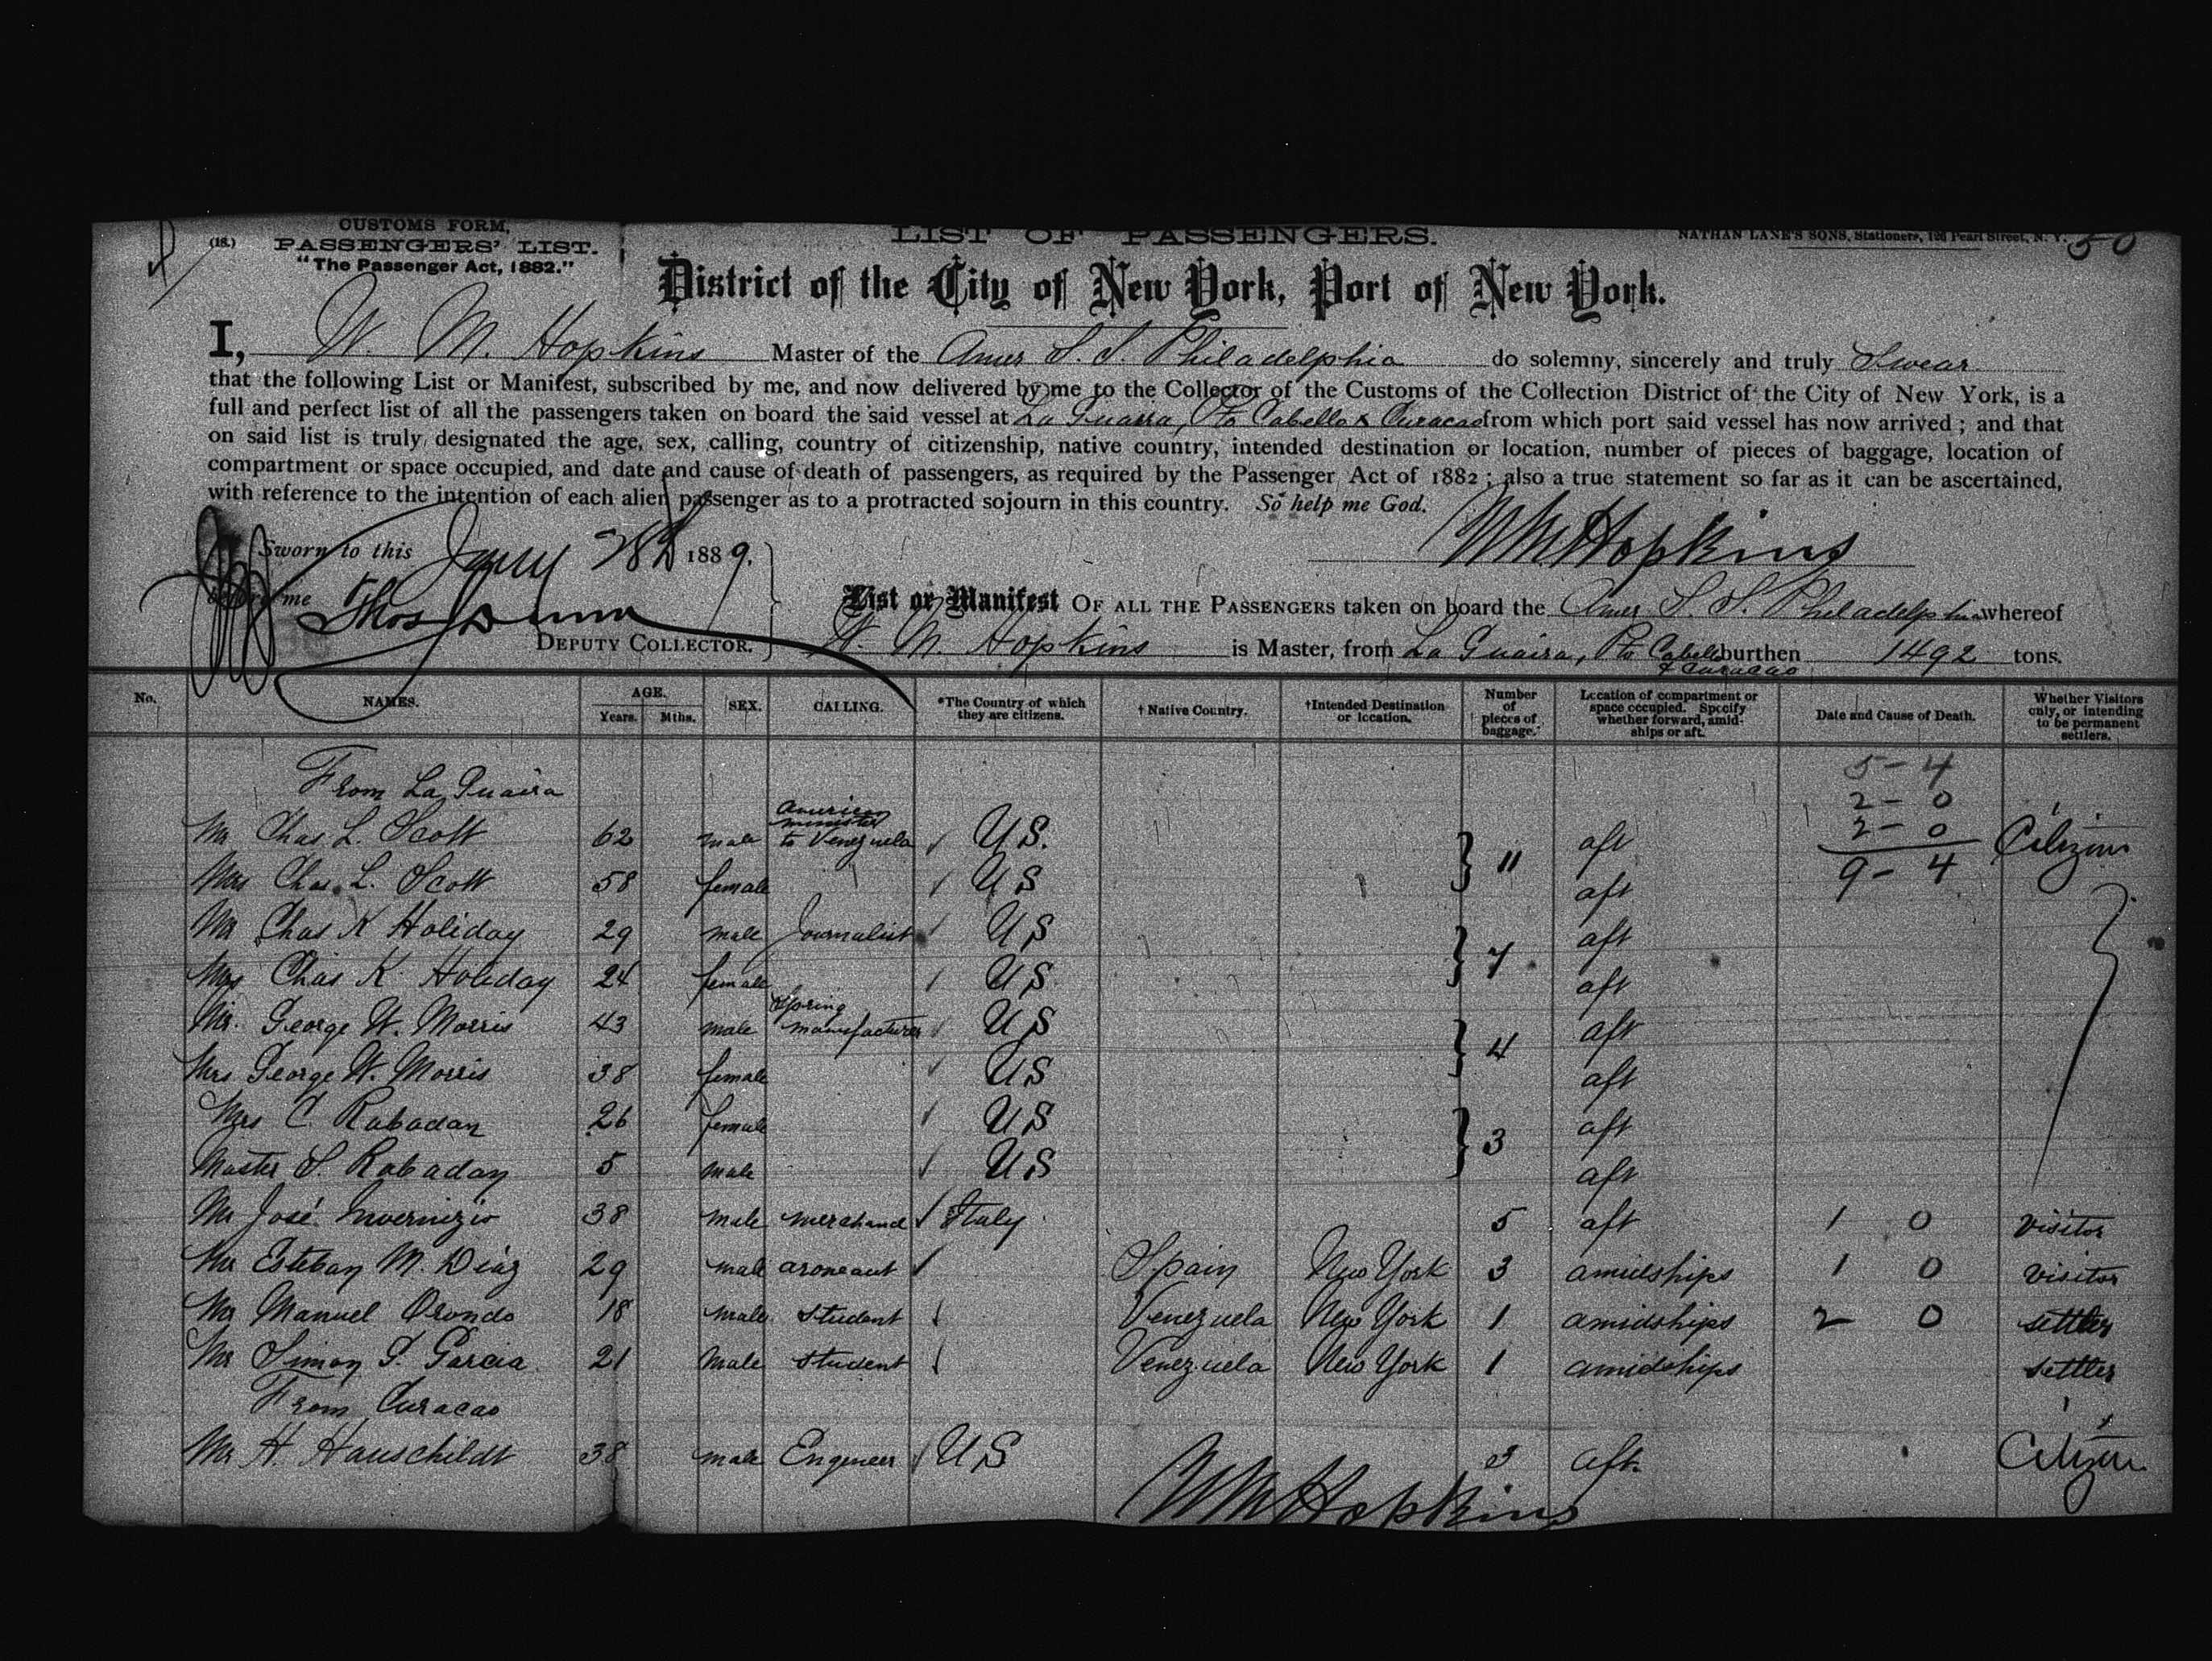 (18.)
CUSTOMS FORM,
PASSENGERS' LIST.
"The Passenger Act, 1882."
LIST OF PASSENGERS.
NATHAN LANE'S SONS, Stationers, Pearl Street, N. Y.
50
District of the City of New York, Port of New York.
I, W. M. Hopkins Master of the Amer S. S. Philadelphia do solemny, sincerely and truly Swear
that the following List or Manifest, subscribed by me, and now delivered by me to the Collector of the Customs of the Collection District of the City of New York, is a
full and perfect list of all the passengers taken on board the said vessel at La Guaira, Pto Cabello & Curacao from which port said vessel has now arrived; and that
on said list is truly designated the age, sex, calling, country of citizenship, native country, intended destination or location, number of pieces of baggage, location of
compartment or space occupied, and date and cause of death of passengers, as required by the Passenger Act of 1882; also a true statement so far as it can be ascertained,
with reference to the intention of each alien passenger as to a protracted sojourn in this country. So help me God.
WM Hopkins
Sworn to this Jany 28th 1889.
before me Thos Dunn
DEPUTY COLLECTOR.
List or Manifest OF ALL THE PASSENGERS taken on board the Amer S. S. Philadelphia whereof
W. M. Hopkins is Master, from La Guaira, Pto Cabello & Curacao burthen 1492 tons.
No. NAMES. AGE. Years. Mths. SEX. CALLING. *The Country of which they are citizens. †Native Country. †Intended Destination or location. Number of pieces of baggage. Location of compartment or space occupied. Specify whether forward, amidships or aft. Date and Cause of Death. Whether Visitors only, or intending to be permanent settlers.
5 - 4
From La Guaira
2 - 0
2 - 0
9 - 4
Mr Chas. L. Scott 62 male American minister to Venezuela U.S. 11 aft Citizens
Mrs Chas. L. Scott 58 female U S aft
Mr Chas K Holiday 29 male Journalist U S 7 aft
Mrs Chas K Holiday 24 female U S aft
Mr. George W. Morris 43 male Spring manufacturer U S 4 aft
Mrs George W. Morris 38 female U S aft
Mrs C. Rabadan 26 female U S 3 aft
Master S. Rabadan 5 male U S aft
Mr José Invernizio 38 male merchand Italy 5 aft 1 0 visitor
Mr Esteban M. Diaz 29 male aroneaut Spain New York 3 amidships 1 0 visitor
Mr Manuel Orondo 18 male student Venezuela New York 1 amidships 2 0 settler
Mr Simon P. Garcia 21 male student Venezuela New York 1 amidships settler
From Curacao
Mr H. Hauschildt 38 male Engineer U S 3 aft Citizen
WM Hopkins